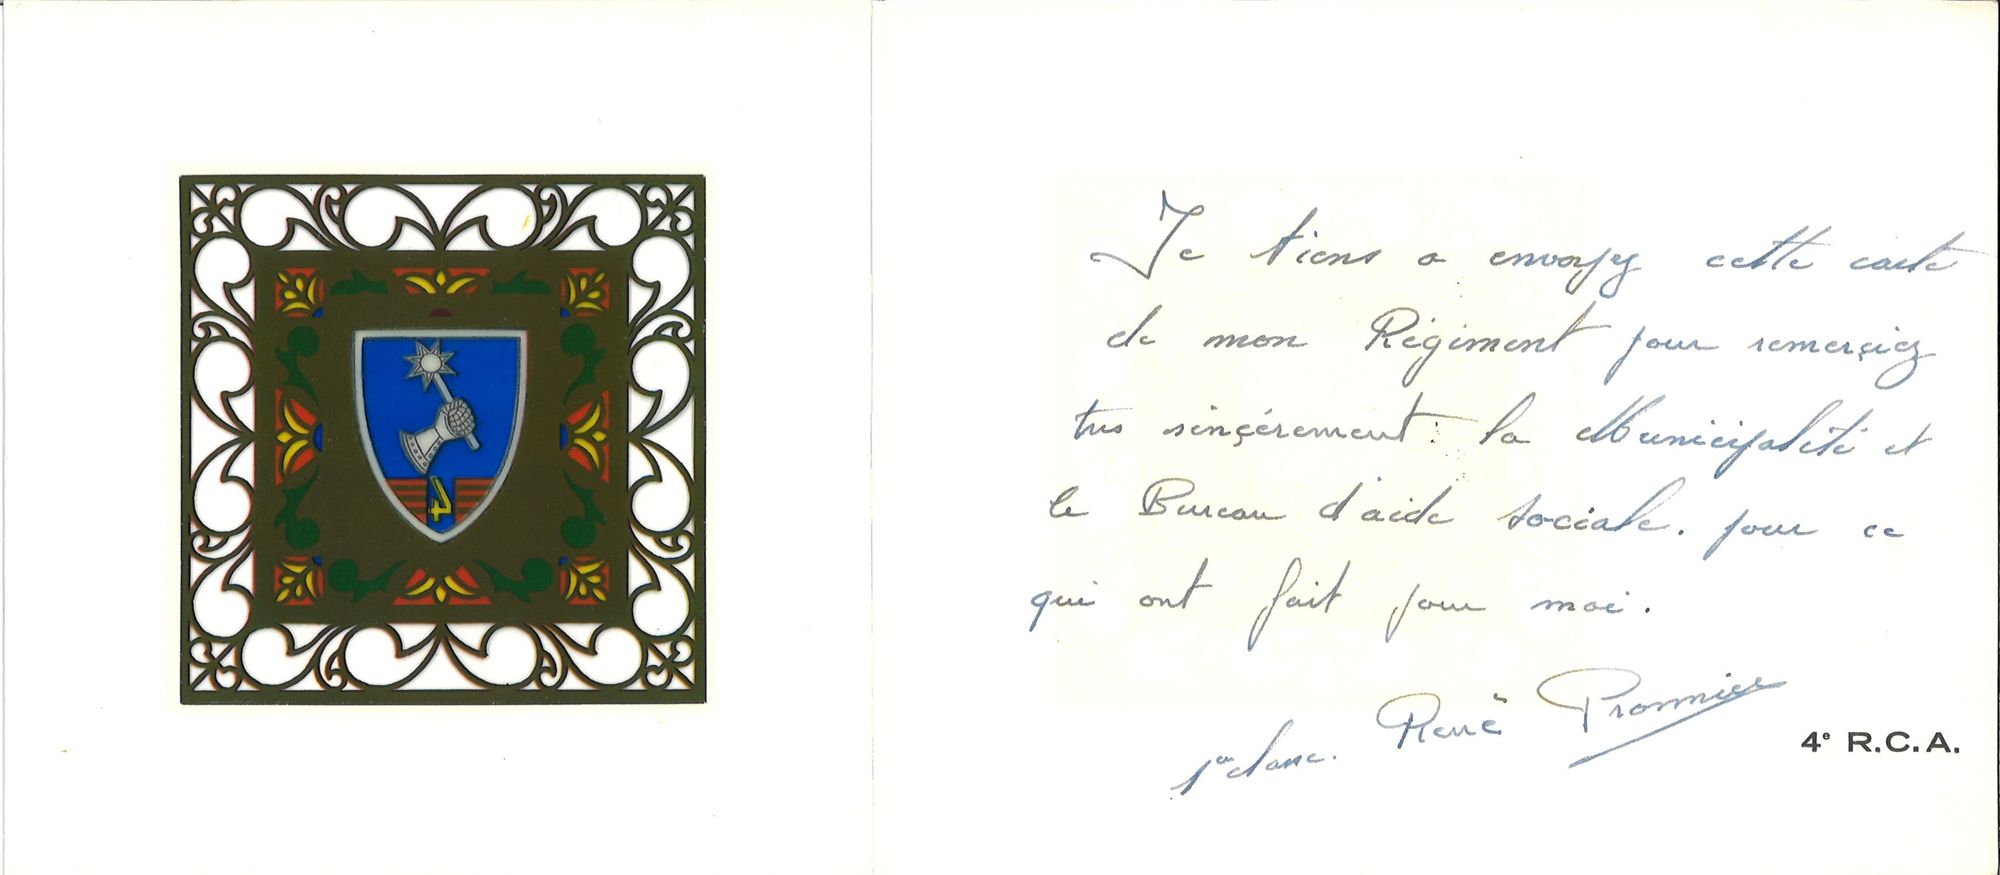 4
Je tiens a envoyez cette carte
de mon Régiment pour remerçiez
tres sinçérement : la Municipalité et
le Bureau d'aide sociale. pour ce
qui ont fait pour moi.
1er classe. René Pronnier
4e R.C.A.